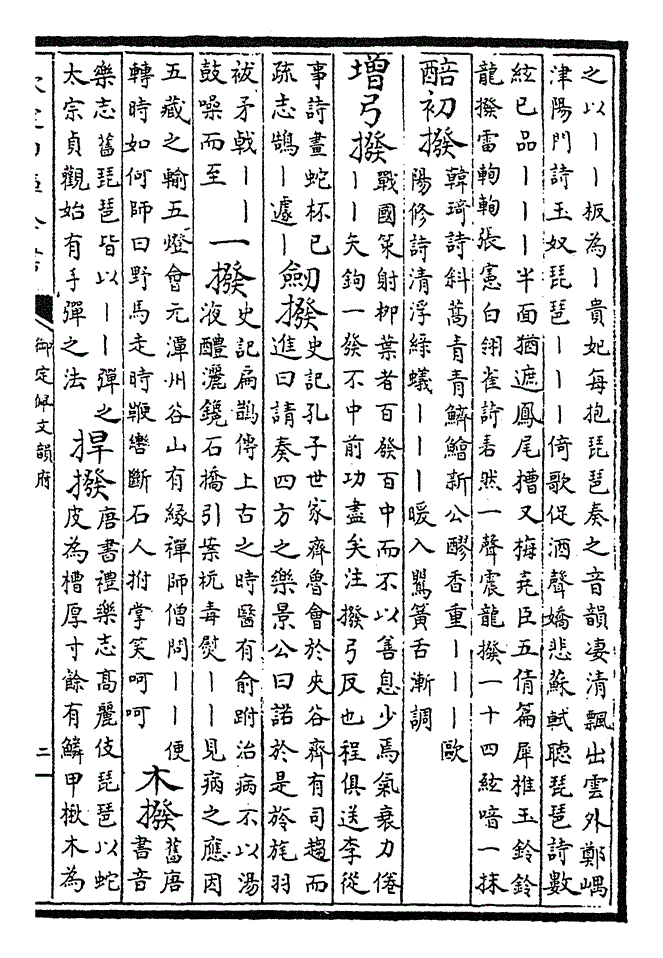 之以｜｜扳為｜貴妃每抱琵琶奏之音韻淒清飄出雲外鄭嵎
津陽門詩玉奴琵琶｜｜｜倚歌促酒聲嬌悲蘇軾聽琵琶詩數
絃已品｜｜｜半面猶遮鳳尾槽又梅堯臣五倩篇犀椎玉鈴鈴
龍撥雷輷輷張憲白翎雀詩砉然一聲震龍撥一十四絃喑一抹
醅初撥
韓琦詩斜蒿青青鱭鱠新公醪香重｜｜｜歐
陽修詩清浮綠蟻｜｜｜暖入鶯簧舌漸調
增弓撥
戰國策射柳葉者百發百中而不以善息少焉氣衰力倦
｜｜矢鉤一發不中前功盡矣注撥弓反也程俱送李從
事詩畫蛇杯已
疏志鵠｜遽｜
劒撥
史記孔子世家齊魯會於夾谷齊有司趨而
進曰請奏四方之樂景公曰諾於是旍旄羽
袚矛戟｜｜
鼓噪而至
一撥
史記扁鵲傳上古之時醫有俞跗治病不以湯
液醴灑鑱石撟引案杬毒熨｜｜見病之應因
五藏之輸五燈會元潭州谷山有緣禪師僧問｜｜便
轉時如何師曰野馬走時鞭轡斷石人拊掌笑呵呵
木撥
舊唐
書音
樂志舊琵琶皆以｜｜彈之
太宗貞觀始有手彈之法
捍撥
唐書禮樂志高麗伎琵琶以蛇
皮為槽厚寸餘有鱗甲楸木為
御定佩文韻府
二